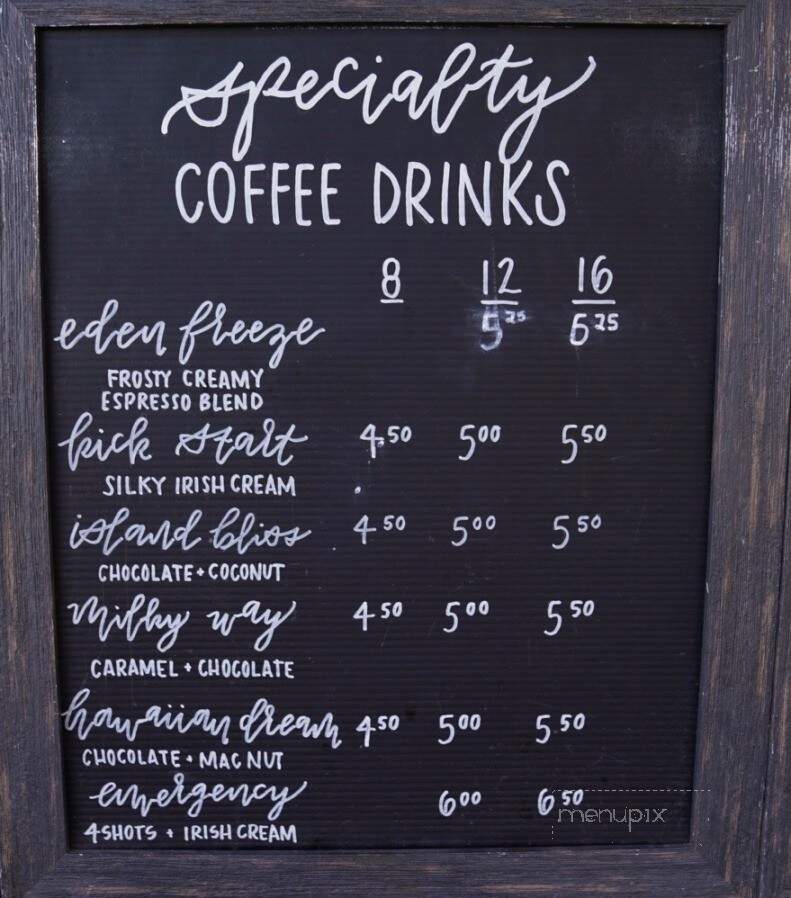 specialty
COFFEE DRINKS
8 12 16
eden freeze 5 25 6 25
FROSTY CREAMY
ESPRESSO BLEND
kick start 4.50 5 00 5 50
SILKY IRISH CREAM
island bliss 4 50 5 00 5 50
CHOCOLATE + COCONUT
milky way 4 50 5 00 5 50
CARAMEL + CHOCOLATE
hawaiian dream 4 50 5 00 5 50
CHOCOLATE + MAC NUT
emergency 6 00 6 50
4 SHOTS + IRISH CREAM
menupix